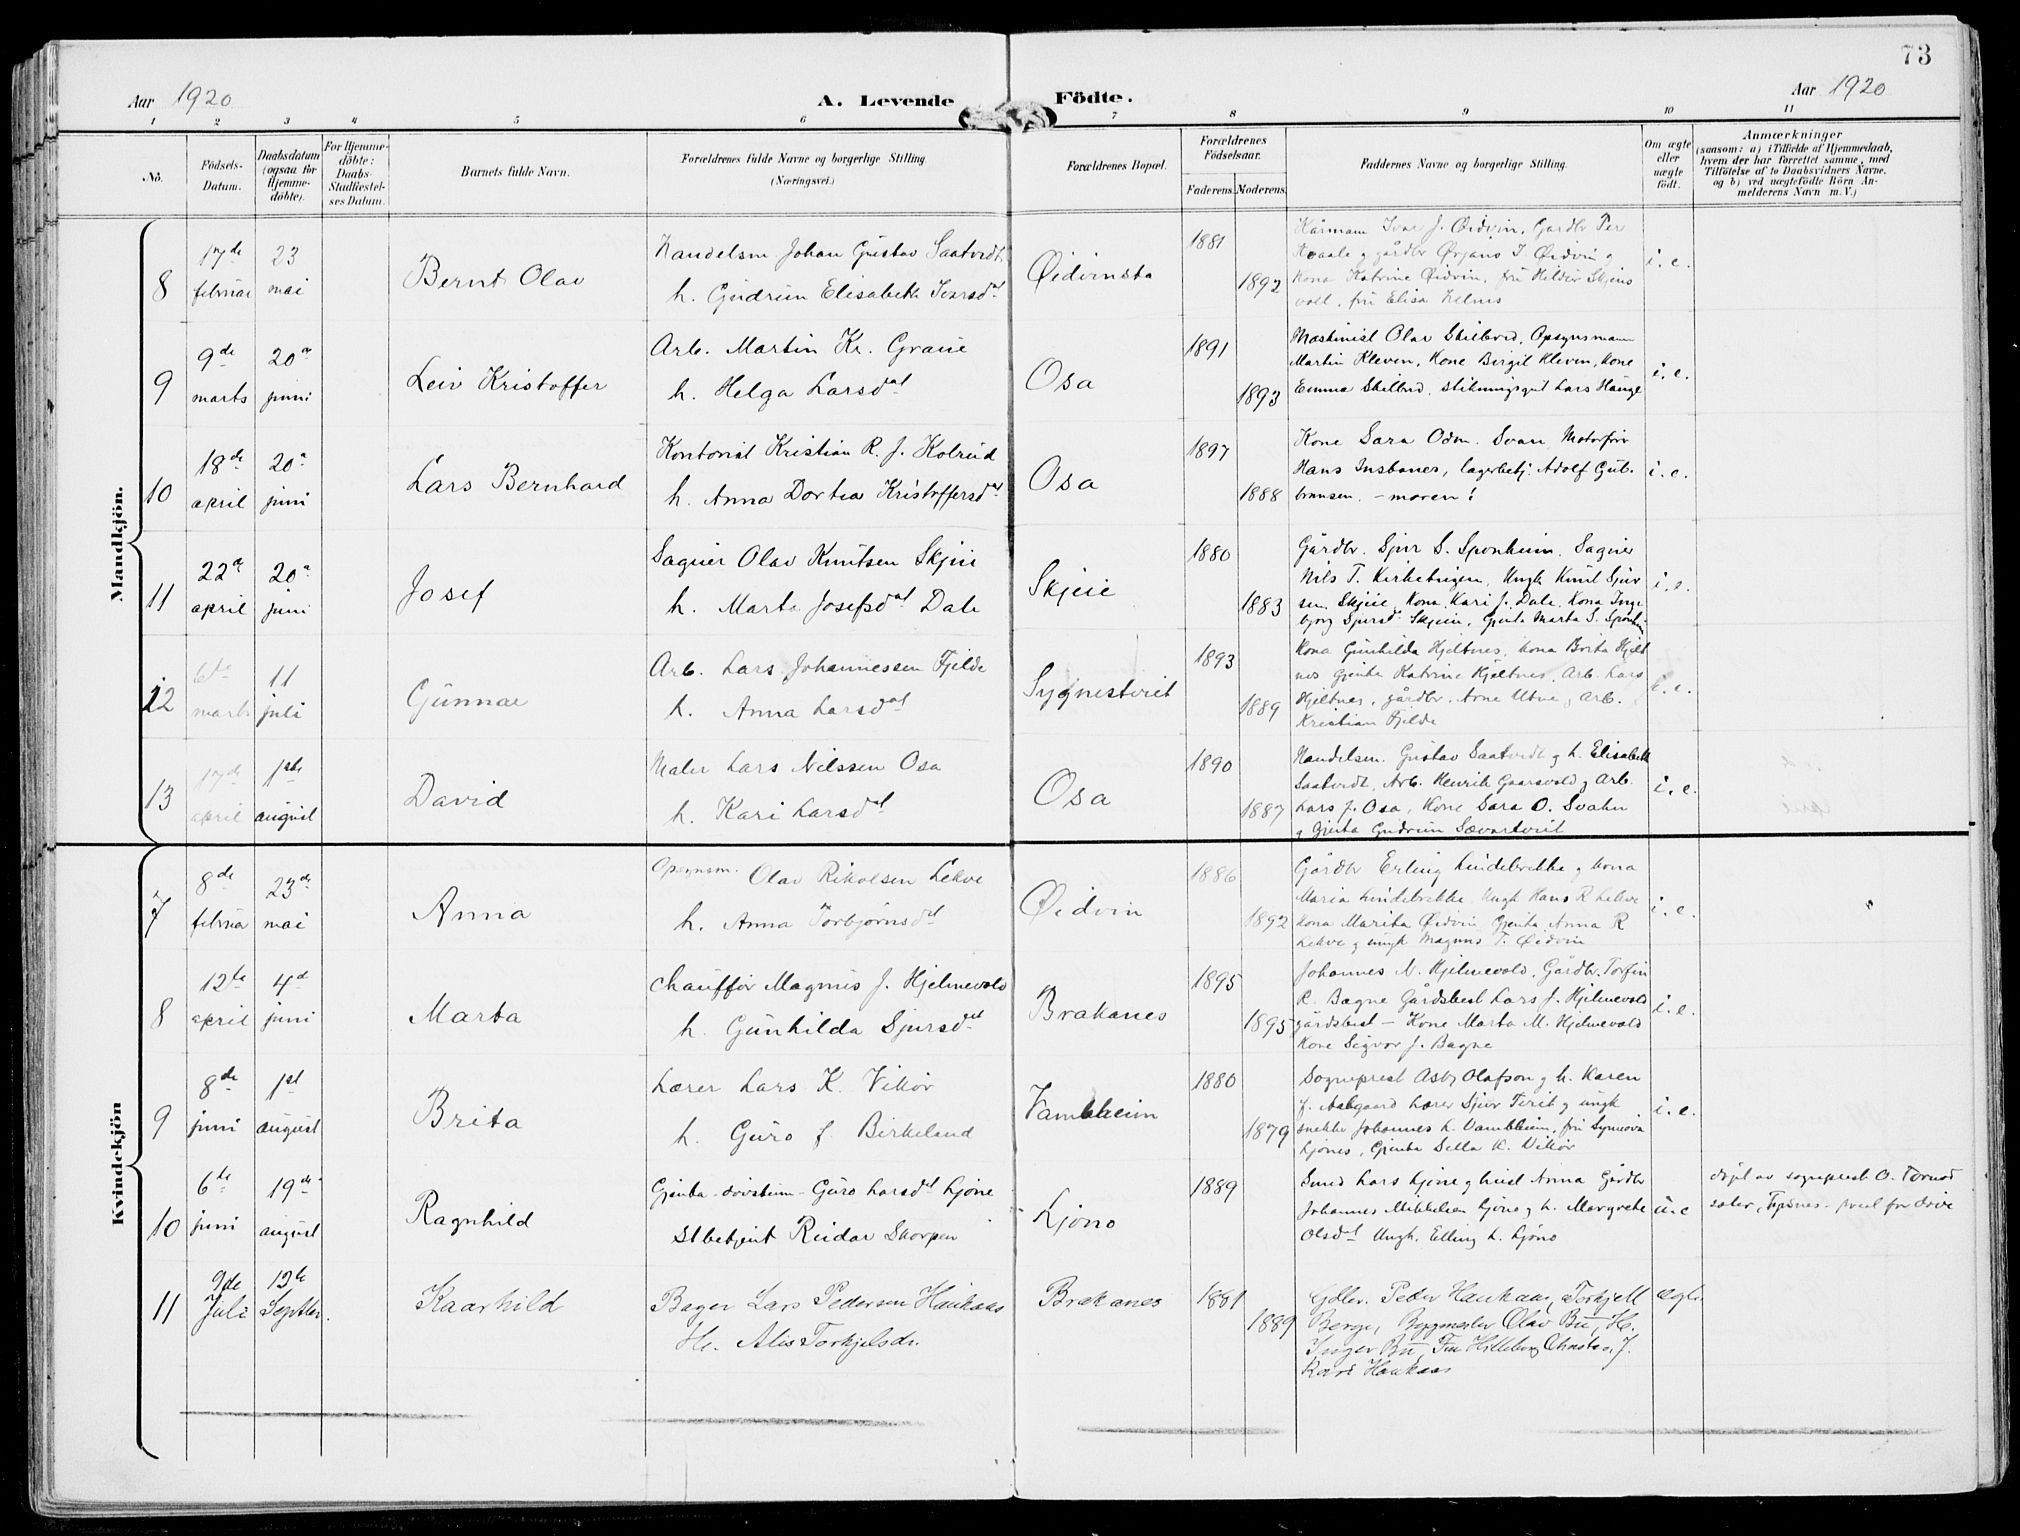 73
Aar 1920
A. Levende Födte.
Aar 1920
1 2 3 4 5 6 7 8 9 10 11
No.
Födsels-Datum.
Daabsdatum (ogsaa for Hjemmedöbte).
For Hjemmedöbte: Daabs-Stadfæstelses Datum.
Barnets fulde Navn.
Forældrenes fulde Navne og borgerlige Stilling. (Næringsvei.)
Forældrenes Bopæl.
Forældrenes Födselsaar.
Faderens. Moderens.
Faddernes Navne og borgerlige Stilling.
Om ægte eller uægte födt.
Anmærkninger
(saasom: a) i Tilfælde af Hjemmedaab, hvem der har forrettet samme, med Tilföielse af to Daabsvidners Navne, og b) ved uægtefödte Börn Anmelderens Navn m. V.)
Mandkjön.
8 17de februar 23 mai Bernt Olav
Handelsm Johan Gustav Saatvedt
h. Gudrun Elisabeth Ivarsdat
Øidvinsto 1881 1892
Ivar J. Øidvin, Gardbr Per
Kvaale og gårdbr Ørjans I Øidvin og
Kona Katrine Øidvin, fru Hildur Skjens
voll, fru Elisa Helnes
i. e.
9 9de marts 20de juni Leiv Kristoffer
Arb. Martin Kr. Graue
h. Helga Larsdat
Osa 1891 1893
Maskinist Olav Skilbred, Opsynsmann
Martin Kleven, Kone Birgit Kleven, Kone
Emma Skilbred, stikningsgut Lars Hauge
i. e.
10 18de april 20de juni Lars Bernhard
Kontorist Kristian R. J. Kolrud
h. Anna Dortea Kristoffersdat
Osa 1897 1888
Kone Sara Odm. Svan Motorfør
Hans Insbanes, lagerbetj. Adolf Gul-
bransen. – moren!
i. e.
11 22de april 20de juni Josef
Saguier Olav Knutsen Skjeie
h. Marta Josefsdat Dale
Skjeie 1880 1883
Gårdbr. Sjur S. Sponheim, Saguier
Nils T. Kirketeigen, Ungk Knut Sjur
sen Skjeie, Kona Kari J. Dale, Kona Inge
bjorg Sjursd. Skjeie, Gjenta Marta S. Sponheim
i. e.
12 6te marts 11 juli Gunnar
Arb. Lars Johannessen Fjelde
h. Anna Larsdat
Sygnestveit 1893 1889
Kona Gunhilda Hjeltnes, kona Brita Hjelt
nes gjenta Katrine Hjeltnes, Arb. Lars
Hjeltnes, gårdbr. Arne Utne, Arb.
Kristian Fjelde
i. e.
13 17de april 1ste august David
Maler Lars Nilssen Osa
h. Kari Larsdat
Osa 1890 1887
Handelsm. Gustav Saatvedt og h. Elisabeth
Saatvedt, Arb. Henrik Gaarsvold og Arb.
Lars J. Osa, Kone Sara O. Svahn
og Gjenta Gudrun Sævartveit
i. e.
Kvindekjön
7 8de februar 23de mai Anna
Opsynsm. Olav Rikolsen Lekve
h. Anna Torbjørnsdt
Øidvin 1886 1892
Gårdbr Erling Lindebrekke og kona
Maria Lindebrekke Ungk Hans R Lekve
Kona Marita Øidvin Gjenta Anna R
Lekve og ungk Magnus T. Øidvin
i. e.
8 12te april 4d juni Marta
Chauffør Magnus J. Hjelmevold
h. Gunhilda Sjursdat
Brakanes 1895 1895
Johannes N. Hjelmevold, Gårdbr. Torfin
R. Bagne Gårdsbest Lars J. Hjelmevold
gårdsbest – Kone Marta M. Hjelmevold
Kone Sigvor J. Bagne
i. e.
9 8de juni 1st august Brita
Lærer Lars K. Vikør
h. Guro f. Birkeland
Vambheim 1880 1879
Sogneprest Asbj Olafson og h. Karen
f. Aalgaard Lærer Sjur Tveit og ungk
snekke Johannes L. Vambheim, fru Synnøva
Ljones, Gjenta Sella K. Vikør
i. e.
10 6te juni 19de august Ragnhild
Gjenta Guro Larsdat Ljone
Stbetjent Reidar Skorpen
Ljono 1889
Smed Lars Ljone og hust Anna Gårdbr
Johannes Mikkelsen Ljone og h. Margrete
Olsdat Ungk. Elling L. Ljono
u. e
døpt av sogneprest O.
11 9de Juli 12te Septbr. Kaarhild
Bager Lars Pedersen Haukaas
H. Alis Torkjelsdr.
Brakanes 1881 1889
Gdbr. Peder Haukaas, Torkjell
Berge, Byggmester Olav Bu, H.
Inger Bu, Fru Hilleborg
Kari Haukaas
ægte